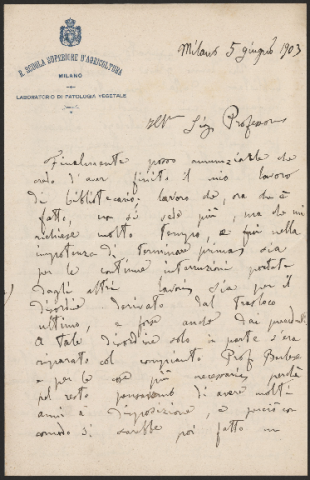 R. SCUOLA SUPERIORE D'AGRICOLTURA
MILANO
LABORATORIO DI PATOLOGIA VEGETALE
Milano 5 giugno 1903
Ill.mo Sig. Professore
Finalmente posso annunziarle che
credo d'aver finito il mio lavoro
di bibliotecario: lavoro che, ora che è
fatto, non si vede più, ma che mi
richiese molto tempo, e fui nella
impotenza di terminare prima sia
per le continue interruzioni portate
dagli altri lavori sia per il
disordine derivato dal trasloco
ultimo, e forse anche dai precedenti.
A tale disordine solo in parte s'era
riparato col compianto Prof. Barbera
e per le cose più necessarie, perchè
pel resto pensavamo di avere molti
anni a disposizione, e perciò con
comodo si sarebbe poi fatto un